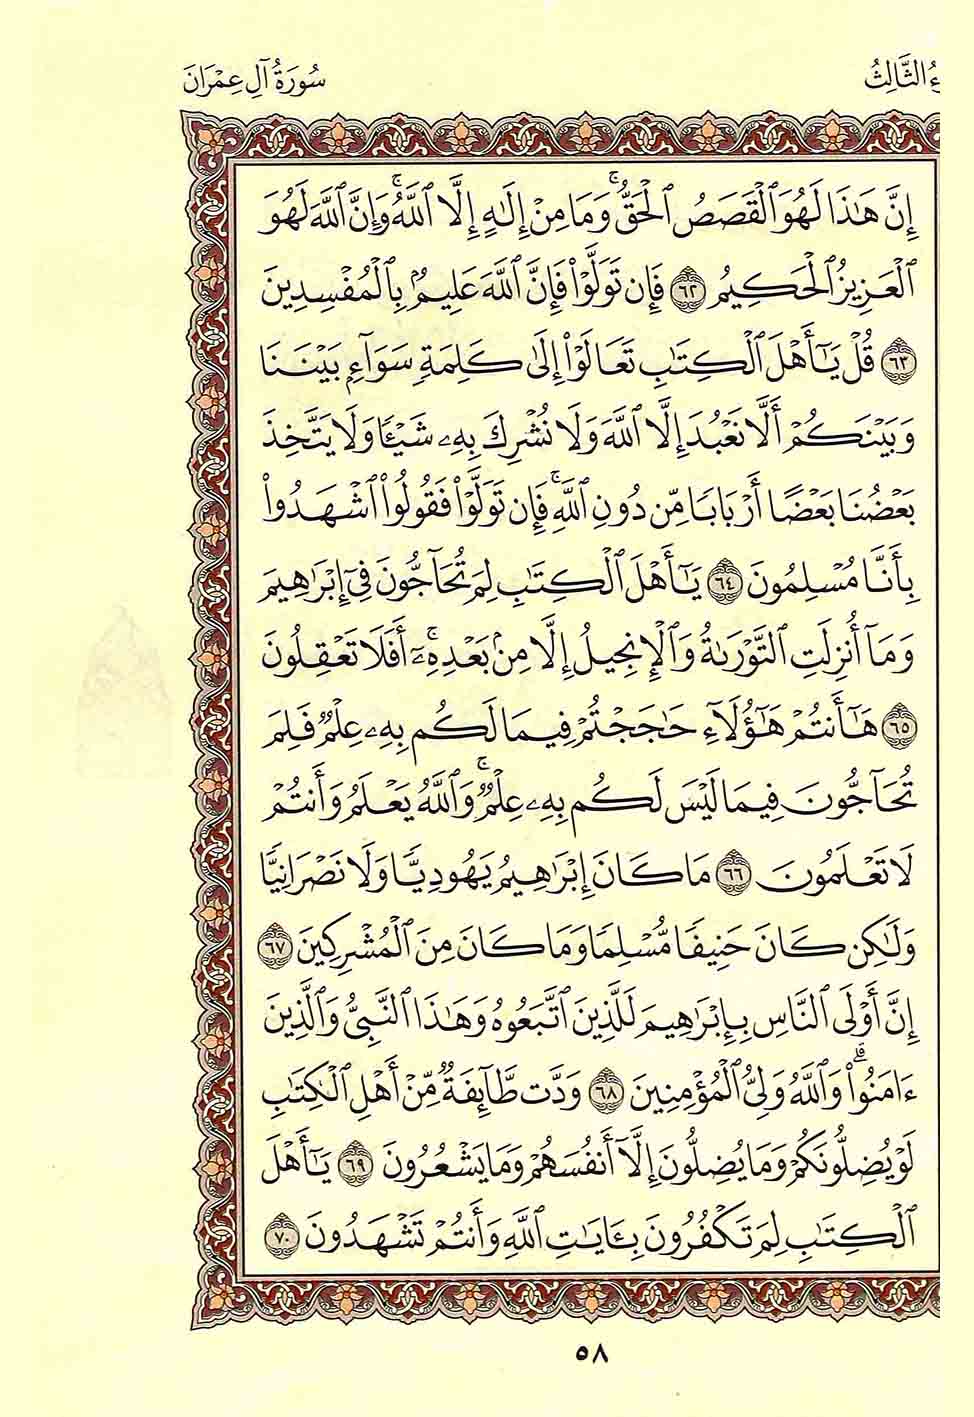 ءُ الثَّالِثُ
سُورَةُ آلِ عِمْرَانَ
إِنَّ هَٰذَا لَهُوَ ٱلْقَصَصُ ٱلْحَقُّ ۚ وَمَا مِنْ إِلَٰهٍ إِلَّا ٱللَّهُ ۚ وَإِنَّ ٱللَّهَ لَهُوَ
ٱلْعَزِيزُ ٱلْحَكِيمُ ٦٢ فَإِن تَوَلَّوْا۟ فَإِنَّ ٱللَّهَ عَلِيمٌۢ بِٱلْمُفْسِدِينَ
٦٣ قُلْ يَٰٓأَهْلَ ٱلْكِتَٰبِ تَعَالَوْا۟ إِلَىٰ كَلِمَةٍ سَوَآءٍۭ بَيْنَنَا
وَبَيْنَكُمْ أَلَّا نَعْبُدَ إِلَّا ٱللَّهَ وَلَا نُشْرِكَ بِهِۦ شَيْـًٔا وَلَا يَتَّخِذَ
بَعْضُنَا بَعْضًا أَرْبَابًا مِّن دُونِ ٱللَّهِ ۚ فَإِن تَوَلَّوْا۟ فَقُولُوا۟ ٱشْهَدُوا۟
بِأَنَّا مُسْلِمُونَ ٦٤ يَٰٓأَهْلَ ٱلْكِتَٰبِ لِمَ تُحَآجُّونَ فِىٓ إِبْرَٰهِيمَ
وَمَآ أُنزِلَتِ ٱلتَّوْرَىٰةُ وَٱلْإِنجِيلُ إِلَّا مِنۢ بَعْدِهِۦٓ ۚ أَفَلَا تَعْقِلُونَ
٦٥ هَٰٓأَنتُمْ هَٰٓؤُلَآءِ حَٰجَجْتُمْ فِيمَا لَكُم بِهِۦ عِلْمٌ فَلِمَ
تُحَآجُّونَ فِيمَا لَيْسَ لَكُم بِهِۦ عِلْمٌ ۚ وَٱللَّهُ يَعْلَمُ وَأَنتُمْ
لَا تَعْلَمُونَ ٦٦ مَا كَانَ إِبْرَٰهِيمُ يَهُودِيًّا وَلَا نَصْرَانِيًّا
وَلَٰكِن كَانَ حَنِيفًا مُّسْلِمًا وَمَا كَانَ مِنَ ٱلْمُشْرِكِينَ ٦٧
إِنَّ أَوْلَى ٱلنَّاسِ بِإِبْرَٰهِيمَ لَلَّذِينَ ٱتَّبَعُوهُ وَهَٰذَا ٱلنَّبِىُّ وَٱلَّذِينَ
ءَامَنُوا۟ ۗ وَٱللَّهُ وَلِىُّ ٱلْمُؤْمِنِينَ ٦٨ وَدَّت طَّآئِفَةٌ مِّنْ أَهْلِ ٱلْكِتَٰبِ
لَوْ يُضِلُّونَكُمْ وَمَا يُضِلُّونَ إِلَّآ أَنفُسَهُمْ وَمَا يَشْعُرُونَ ٦٩ يَٰٓأَهْلَ
ٱلْكِتَٰبِ لِمَ تَكْفُرُونَ بِـَٔايَٰتِ ٱللَّهِ وَأَنتُمْ تَشْهَدُونَ ٧٠
٥٨